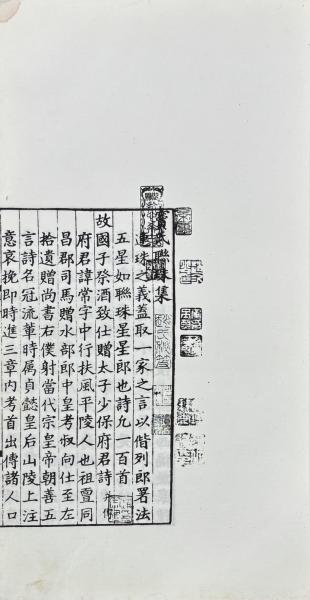 竇氏聯珠集
連珠之義蓋取一家之言以偕列郎署法
五星如聯珠星星郎也詩凡一百首
故國子祭酒致仕贈太子少保府君詩
府君諱常字中行扶風平陵人也祖亶同
昌郡司馬贈水部郎中皇考叔向仕至左
拾遺贈尚書右僕射當代宗皇帝朝善五
言詩名冠流輩時属貞懿皇后山陵上注
意哀挽即時進三章内考首出傳諸人口